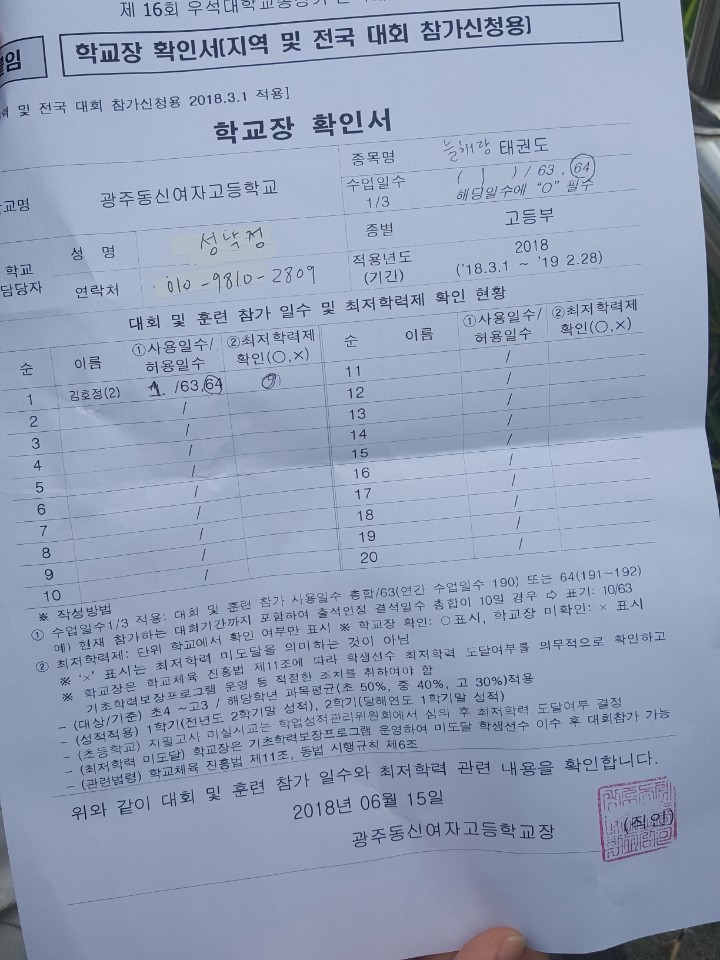 제 16회 우석대학교총장기
붙임
학교장 확인서[지역 및 전국 대회 참가신청용]
및 전국 대회 참가신청용 2018.3.1 적용]
학교장 확인서
학교명 광주동신여자고등학교 종목명 태권도
수업일수 1/3 ( 1 ) / 63, 64
해당일수에 "O" 필수
학교 담당자 성 명 성낙정 종별 고등부
연락처 010-9810-2809 적용년도 (기간) 2018 ('18.3.1 ~ '19 2.28)
대회 및 훈련 참가 일수 및 최저학력제 확인 현황
순 이름 ①사용일수/허용일수 ②최저학력제 확인(○,×) 순 이름 ①사용일수/허용일수 ②최저학력제 확인(○,×)
1 김호정(2) 1 /63,64 ○ 11 /
2 / 12 /
3 / 13 /
4 / 14 /
5 / 15 /
6 / 16 /
7 / 17 /
8 / 18 /
9 / 19 /
10 / 20 /
※ 작성방법
① 수업일수1/3 적용: 대회 및 훈련 참가 사용일수 총합/63(연간 수업일수 190) 또는 64(191~192)
예) 현재 참가하는 대회기간까지 포함하여 출석인정 결석일수 총합이 10일 경우 ⇨ 표기: 10/63
② 최저학력제: 단위 학교에서 확인 여부만 표시 ※ 학교장 확인: ○표시, 학교장 미확인: × 표시
※ '×' 표시는 최저학력 미도달을 의미하는 것이 아님
※ 학교장은 학교체육 진흥법 제11조에 따라 학생선수 최저학력 도달여부를 의무적으로 확인하고
기초학력보장프로그램 운영 등 적절한 조치를 취하며야 함
- (대상/기준) 초4 ~고3 / 해당학년 과목평균(초 50%, 중 40%, 고 30%)적용
- (성적적용) 1학기(전년도 2학기말 성적), 2학기(당해연도 1학기말 성적)
- (초등학교) 지필고사 미실시교는 학업성적관리위원회에서 심의 후 최저학력 도달여부 결정
- (최저학력 미도달) 학교장은 기초학력보장프로그램 운영하여 미도달 학생선수 이수 후 대회참가 가능
- (관련법령) 학교체육 진흥법 제11조, 동법 시행규칙 제6조
위와 같이 대회 및 훈련 참가 일수와 최저학력 관련 내용을 확인합니다.
2018년 06월 15일
광주동신여자고등학교장 (직인)